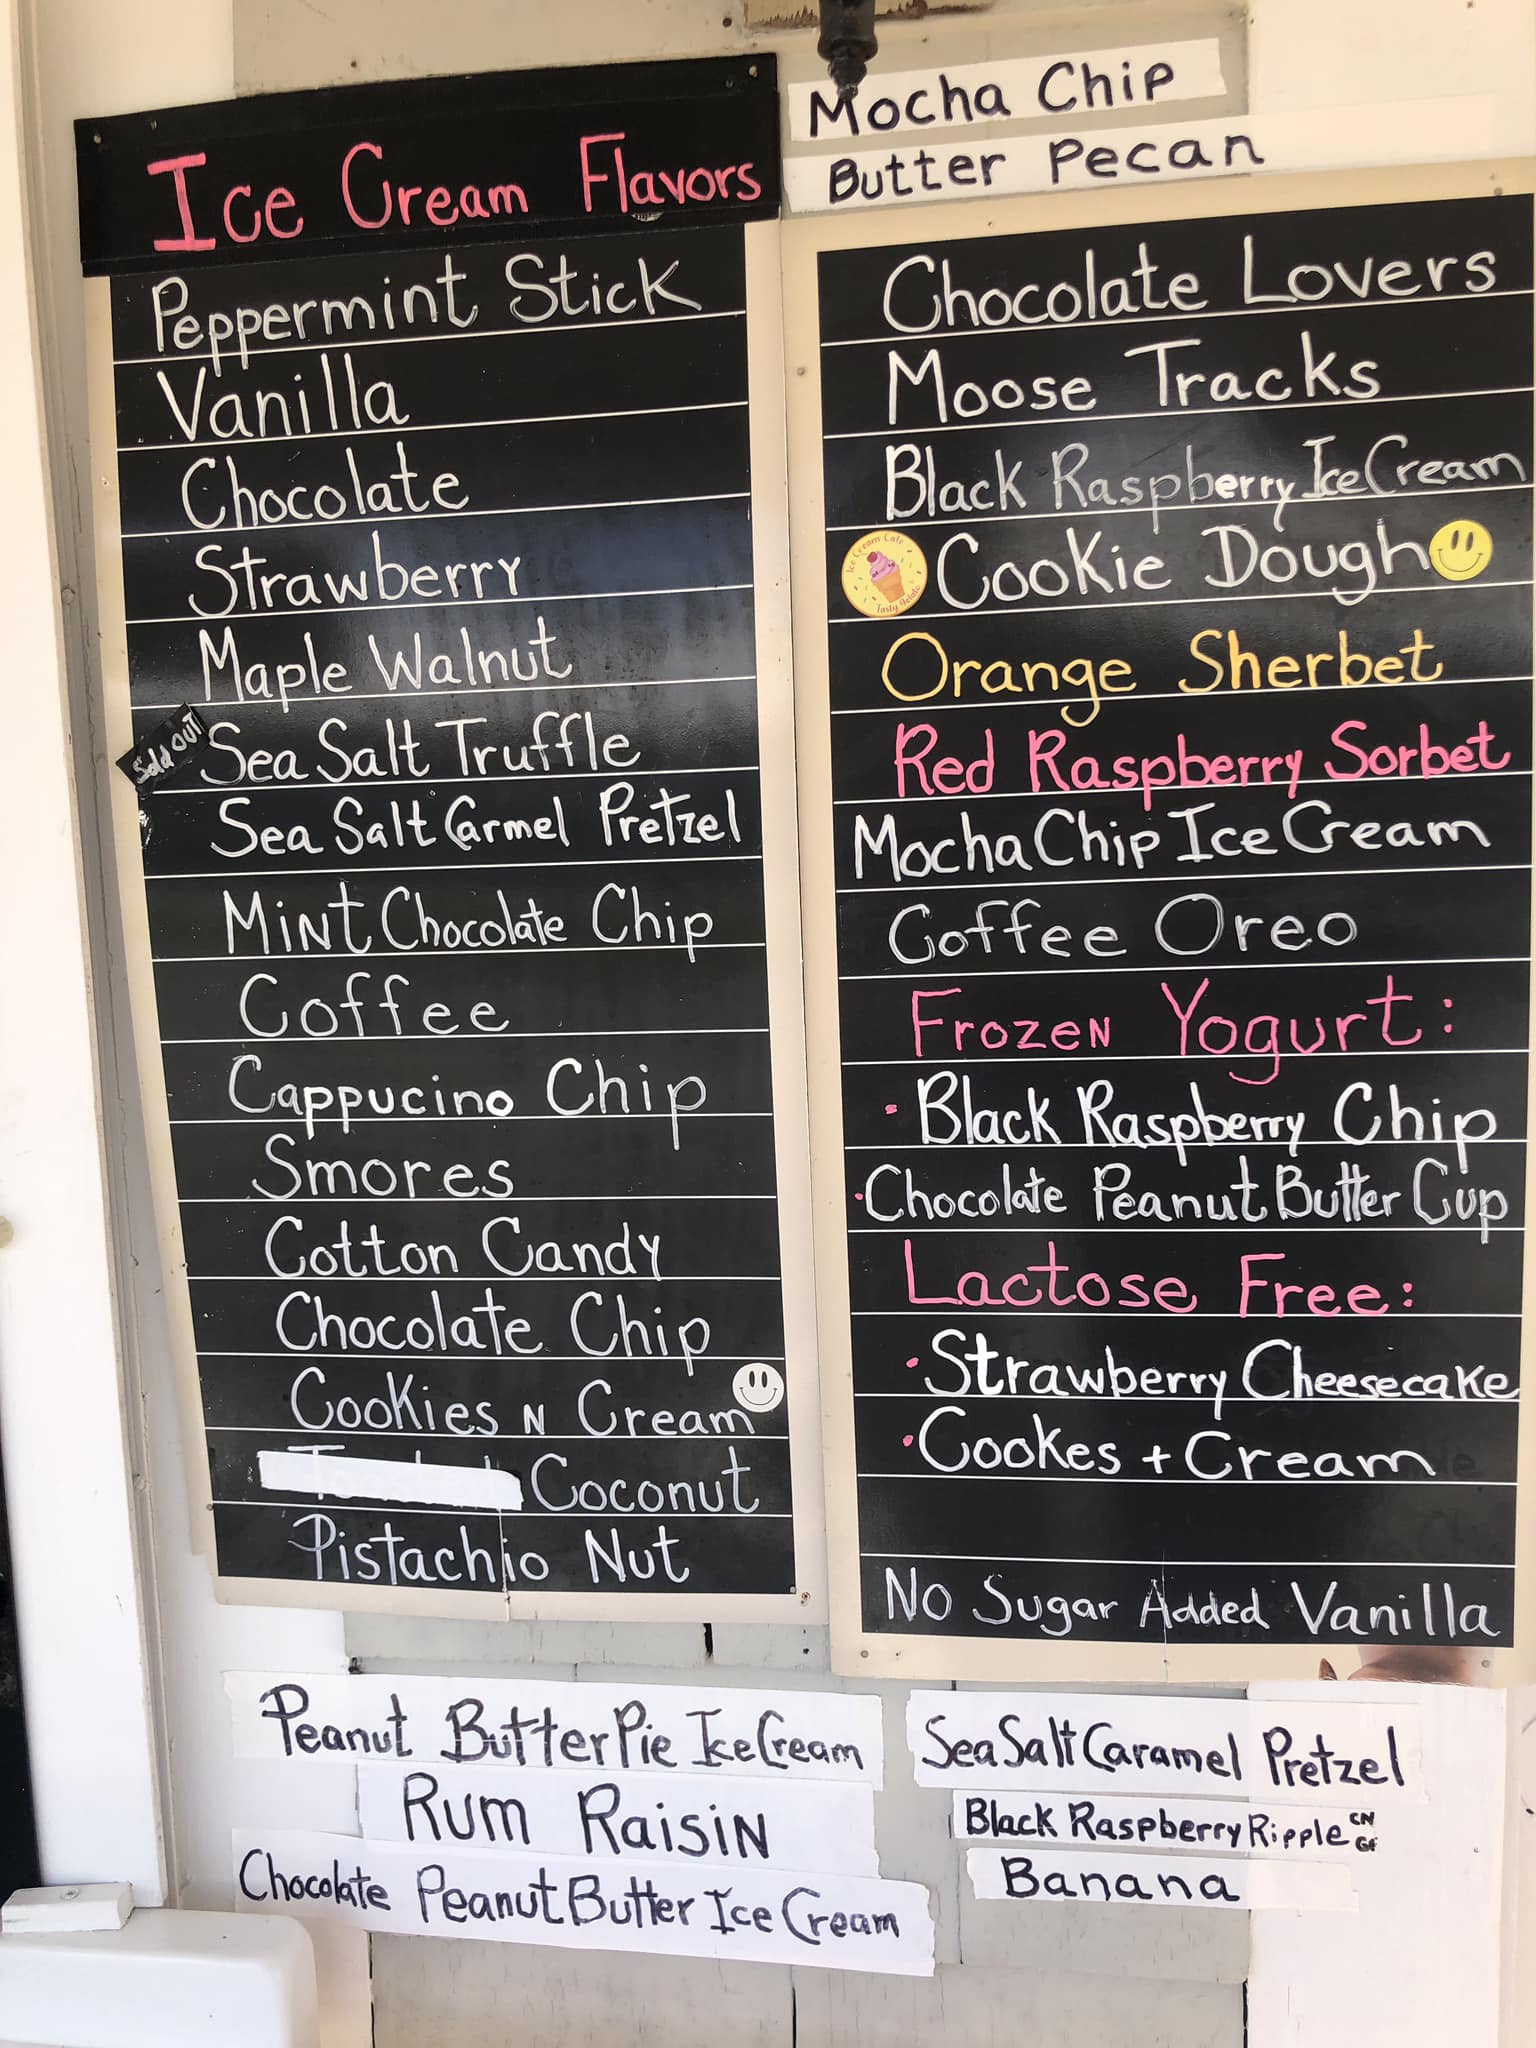 Ice Cream Flavors
Peppermint Stick
Vanilla
Chocolate
Strawberry
Maple Walnut
Sold OUT
Sea Salt Truffle
Sea Salt Carmel Pretzel
Mint Chocolate Chip
Coffee
Cappucino Chip
Smores
Cotton Candy
Chocolate Chip
Cookies N Cream
Coconut
Pistachio Nut
Peanut Butter Pie Ice Cream
Rum Raisin
Chocolate Peanut Butter Ice Cream
Mocha Chip
Butter Pecan
Chocolate Lovers
Moose Tracks
Black Raspberry Ice Cream
Ice Cream Cafe
Tasty Gelato
Cookie Dough
Orange Sherbet
Red Raspberry Sorbet
Mocha Chip Ice Cream
Coffee Oreo
Frozen Yogurt:
• Black Raspberry Chip
• Chocolate Peanut Butter Cup
Lactose Free:
• Strawberry Cheesecake
• Cookes + Cream
No Sugar Added Vanilla
Sea Salt Caramel Pretzel
Black Raspberry Ripple
Banana